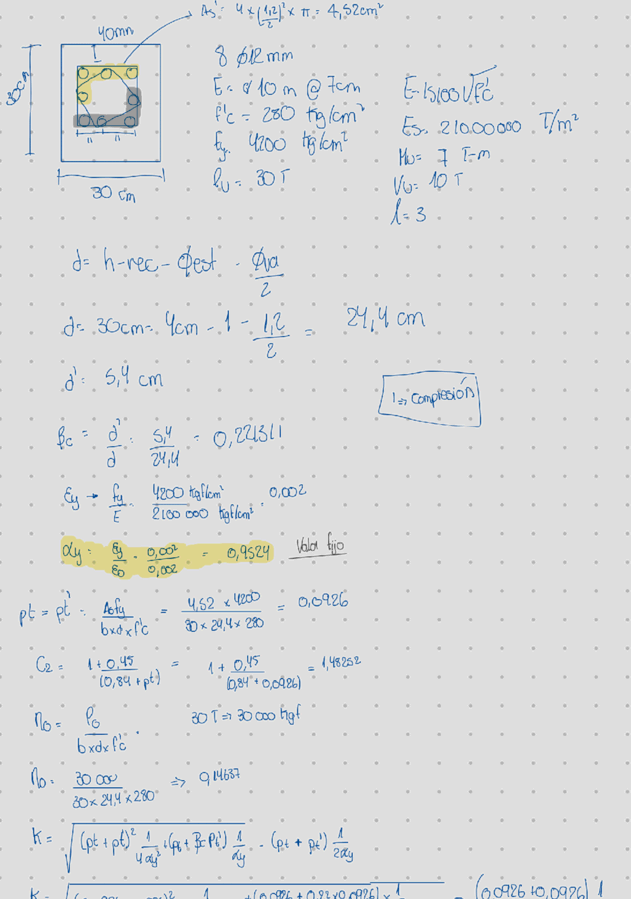 As' = 4 x (1,2/2)² x π = 4,52cm²
40mm
30cm
30 cm
8 ϕ12mm
E = ϕ 10 m @ 7cm
f'c = 280 kg/cm²
fy = 4200 kg/cm²
Pu = 30 T
E = 15100√f'c
Es = 21000000 T/m²
Mu = 7 T-m
Vu = 10 T
l = 3
d = h - rec - ϕest - ϕva/2
d = 30cm - 4cm - 1 - 1,2/2 = 24,4 cm
d' = 5,4 cm
1 => compresión
βc = d'/d = 5,4/24,4 = 0,221311
Ey → fy/E = 4200 kgf/cm²/2100 000 kgf/cm² = 0,002
αy = Ey/Eo = 0,002/0,002 = 0,9524 Valor fijo
pt = pt' = Asfy/bxdxf'c = 4,52 x 4200/30 x 24,4 x 280 = 0,0926
C2 = 1 + 0,45/(0,84 + pt) = 1 + 0,45/(0,84 + 0,0926) = 1,48252
no = Po/bxdxf'c
30 T => 30 000 kgf
no = 30 000/30 x 24,4 x 280 => 0,14637
K = √(pt + pt')² 1/4αy² + (pt + βc pt') 1/αy - (pt + pt') 1/2αy